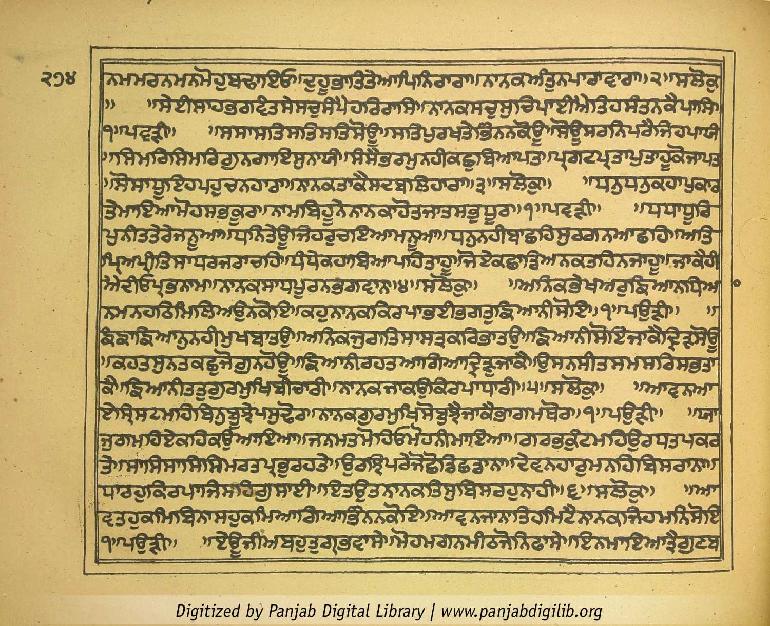 ੨੭੪
ਨਮਮਰਨਮਨਮੋਹੁਬਢਾਇਓ॥ਦੁਹੂਭਾਤਿਤੇਆਪਿਨਿਰਾਰਾ॥ਨਾਨਕਅੰਤੁਨਪਾਰਾਵਾਰਾ॥੨॥ਸਲੋਕੁ
॥ ॥ਸੇਈਸਾਹਭਗਵੰਤਸੇਸਚੁਸੰਪੈਹਰਿਰਾਸਿ॥ਨਾਨਕਸਚੁਸੁਚਿਪਾਈਐਤਿਹਸੰਤਨਕੈਪਾਸਿ॥
੧॥ਪਵੜੀ॥ ॥ਸਸਾਸਤਿਸਤਿਸਤਿਸੋਊ॥ਸਤਿਪੁਰਖਤੇਭਿੰਨਨਕੋਊ॥ਸੋਊਸਰਨਿਪਰੈਜਿਹਪਾਯੰ
॥ਸਿਮਰਿਸਿਮਰਿਗੁਨਗਾਇਸੁਨਾਯੰ॥ਸੰਸੈਭਰਮੁਨਹੀਕਛੁਬਿਆਪਤ॥ਪ੍ਰਗਟਪ੍ਰਤਾਪੁਤਾਹੂਕੋਜਾਪਤ
॥ਸੋਸਾਧੂਇਹਪਹੁਚਨਹਾਰਾ॥ਨਾਨਕਤਾਕੈਸਦਬਲਿਹਾਰਾ॥੩॥ਸਲੋਕੁ॥ ॥ਧਨੁਧਨੁਕਹਾਪੁਕਾਰ
ਤੇਮਾਇਆਮੋਹਸਭਕੂਰ॥ਨਾਮਬਿਹੂਨੇਨਾਨਕਾਹੋਤਜਾਤਸਭੁਧੂਰ॥੧॥ਪਵੜੀ॥ ॥ਧਧਾਧੂਰਿ
ਪੁਨੀਤਤੇਰੇਜਨੂਆ॥ਧਨਿਤੇਊਜਿਹਰੁਚਇਆਮਨੂਆ॥ਧਨੁਨਹੀਬਾਛਹਿਸੁਰਗਨਆਛਹਿ॥ਅਤਿ
ਪ੍ਰਿਅਪ੍ਰੀਤਿਸਾਧਰਜਰਾਚਹਿ॥ਧੰਧੇਕਹਾਬਿਆਪਹਿਤਾਹੂ॥ਜੋਏਕਛਾਡਿਅਨਕਤਹਿਨਜਾਹੂ॥ਜਾਕੈਹੀ
ਐਦੀਓਪ੍ਰਭਨਾਮ॥ਨਾਨਕਸਾਧਪੂਰਨਭਗਵਾਨ॥੪॥ਸਲੋਕੁ॥ ॥ਅਨਿਕਭੇਖਅਰੁਙਿਆਨਧਿਆ
ਨਮਨਹਠਿਮਿਲਿਅਉਨਕੋਇ॥ਕਹੁਨਾਨਕਕਿਰਪਾਭਈਭਗਤੁਙਿਆਨੀਸੋਇ॥੧॥ਪਉੜੀ॥ ॥
ਙੰਙਾਙਿਆਨੁਨਹੀਮੁਖਬਾਤਉ॥ਅਨਿਕਜੁਗਤਿਸਾਸਤ੍ਰਕਰਿਭਾਤਉ॥ਙਿਆਨੀਸੋਇਜਾਕੈਦ੍ਰਿੜਸੋਊ
॥ਕਹਤਸੁਨਤਕਛੁਜੋਗੁਨਹੋਊ॥ਙਿਆਨੀਰਹਤਆਗਿਆਦ੍ਰਿੜੁਜਾਕੈ॥ਉਸਨਸੀਤਸਮਸਰਿਸਭਤਾ
ਕੈ॥ਙਿਆਨੀਤਤੁਗੁਰਮੁਖਿਬੀਚਾਰੀ॥ਨਾਨਕਜਾਕਉਕਿਰਪਾਧਾਰੀ॥੫॥ਸਲੋਕੁ॥ ॥ਆਵਨਆ
ਏਸ੍ਰਿਸਟਿਮਹਿਬਿਨੁਬੂਝੇਪਸੁਢੋਰ॥ਨਾਨਕਗੁਰਮੁਖਿਸੋਬੁਝੈਜਾਕੈਭਾਗਮਥੋਰ॥੧॥ਪਉੜੀ॥ ॥ਯਾ
ਜੁਗਮਹਿਏਕਹਿਕਉਆਇਆ॥ਜਨਮਤਮੋਹਿਓਮੋਹਨੀਮਾਇਆ॥ਗਰਭਕੁੰਟਮਹਿਉਰਧਤਪਕਰ
ਤੇ॥ਸਾਸਿਸਾਸਿਸਿਮਰਤਪ੍ਰਭੁਰਹਤੇ॥ਉਰਝਿਪਰੇਜੋਛੋਡਿਛਡਾਨਾ॥ਦੇਵਨਹਾਰੁਮਨਹਿਬਿਸਰਾਨਾ॥
ਧਾਰਹੁਕਿਰਪਾਜਿਸਹਿਗੁਸਾਈ॥ਇਤਉਤਨਾਨਕਤਿਸੁਬਿਸਰਹੁਨਾਹੀ॥੬॥ਸਲੋਕੁ॥ ॥ਆ
ਵਤਹੁਕਮਿਬਿਨਾਸਹੁਕਮਿਆਗਿਆਭਿੰਨਨਕੋਇ॥ਆਵਨਜਾਨਾਤਿਹਮਿਟੈਨਾਨਕਜਿਹਮਨਿਸੋਇ
॥੧॥ਪਉੜੀ॥ ॥ਏਊਜੀਅਬਹੁਤੁਗ੍ਰਭਵਾਸੇ॥ਮੋਹਮਗਨਮੀਠਜੋਨਿਫਾਸੇ॥ਇਨਮਾਇਆਤ੍ਰੈਗੁਣਬ
Digitized by Panjab Digital Library | www.panjabdigilib.org